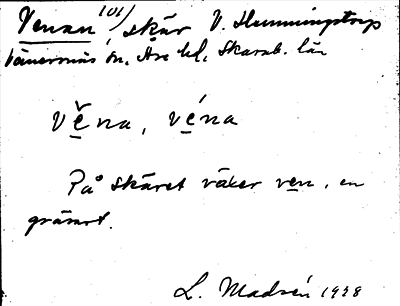 Venan 101/ skär V. Hemmingstorp
Vänersnäs sn, Åse hd, Skarab. län
Vĕna, véna
På skäret växer ven, en
gräsart.
L. Madsén 1928